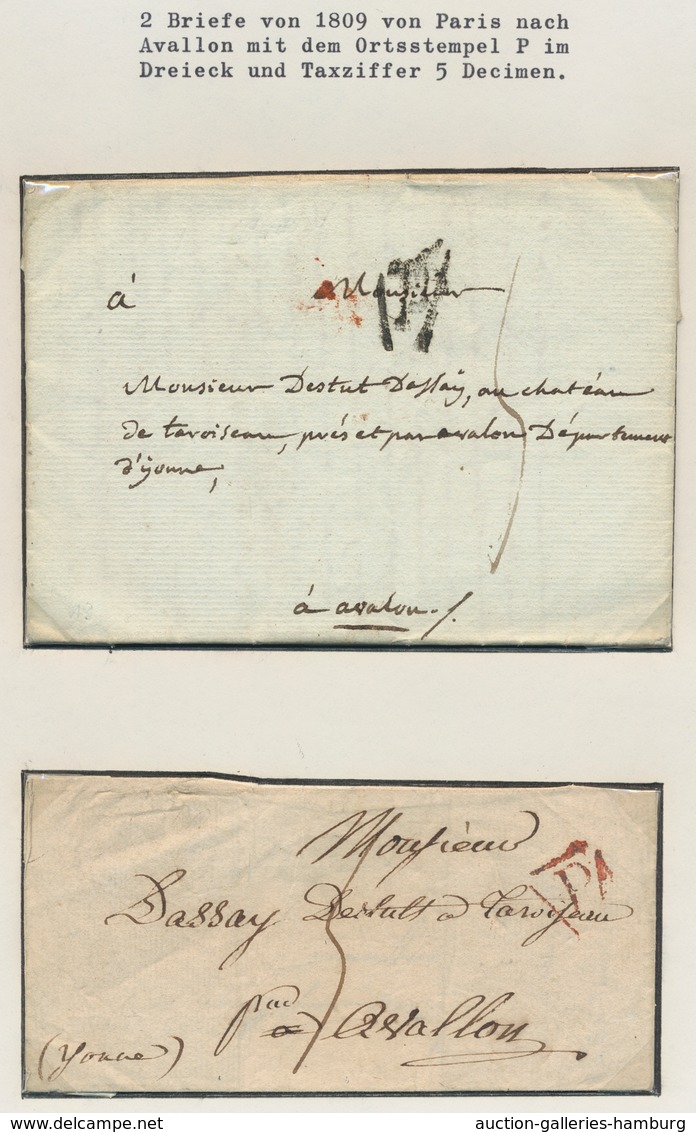 2 Briefe von 1809 von Paris nach
Avallon mit dem Ortsstempel P im
Dreieck und Taxziffer 5 Decimen.
P
à Monsieur
Monsieur Destut Dassaÿ, au chatéau
de taroiseau, prés et par avalon Département
d'ÿonne,
5
à avalon./.
Monsieur
P
Dassay Destutt a taroiseau
5
par
a Avallon
(Yonne)
www.delcampe.net
auction-galleries-hamburg